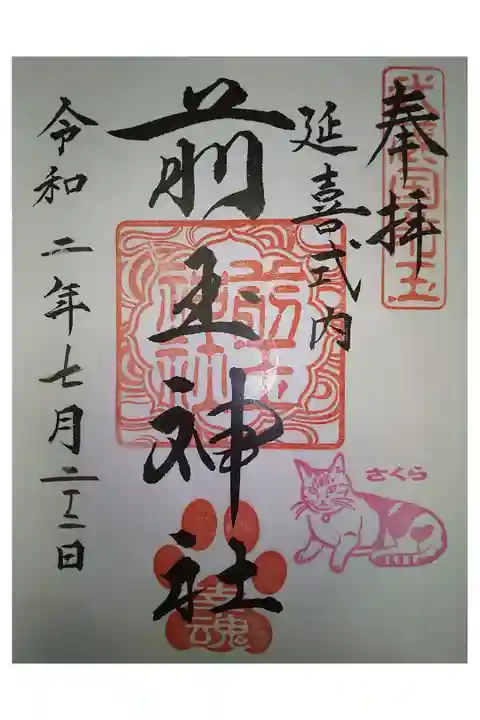 奉拝
武蔵国
玉
延喜式内
前玉神社
前玉
神社
さくら
幸魂
令和二年七月二三日